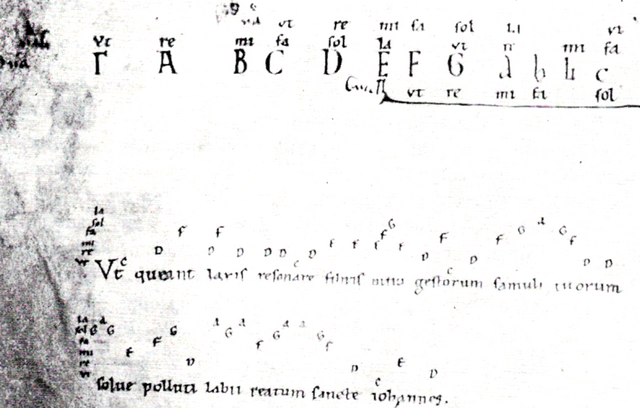 ut re mi fa sol la ut
ut re mi fa sol la ut mi fa
Γ A B C D E F G a b h c
ut re mi fa sol
la
sol
fa
mi
re
ut
D F F D D D D C D E E E F G E D C D F G a G F D D
Ut C queant laxis resonare fibris mira gestorum famuli tuorum
la
sol
fa
mi
re
ut
a G G E F G D a G a F G a a G F D C E D
solue polluti labii reatum sancte iohannes.